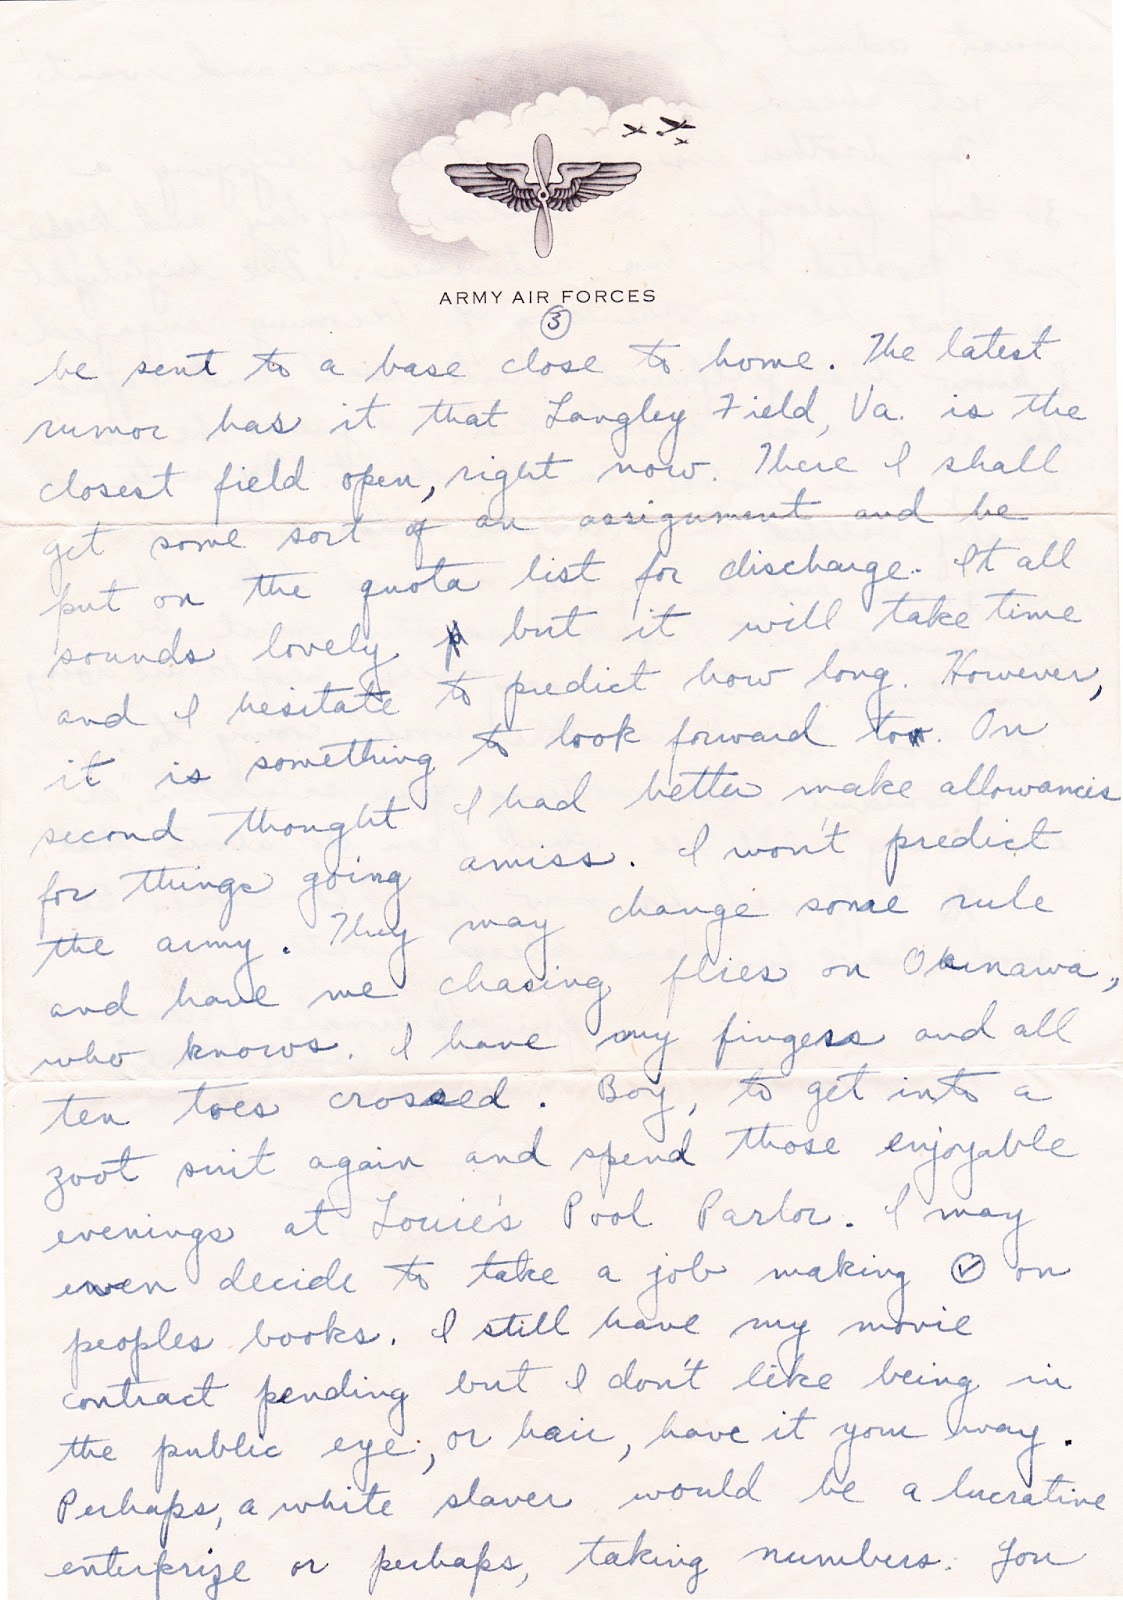 ARMY AIR FORCES
3
be sent to a base close to home. The latest
rumor has it that Langley Field, Va. is the
closest field open, right now. There I shall
get some sort of an assignment and be
put on the quota list for discharge. It all
sounds lovely but it will take time
and I hesitate to predict how long. However,
it is something to look forward to. On
second thought I had better make allowances
for things going amiss. I won't predict
the army. They may change some rule
and have me chasing flies on Okinawa,
who knows. I have my fingers and all
ten toes crossed. Boy, to get into a
zoot suit again and spend those enjoyable
evenings at Louie's Pool Parlor. I may
even decide to take a job making ✓ on
peoples books. I still have my movie
contract pending but I don't like being in
the public eye, or hair, have it your way.
Perhaps, a white slaver would be a lucrative
enterprize or perhaps, taking numbers. You